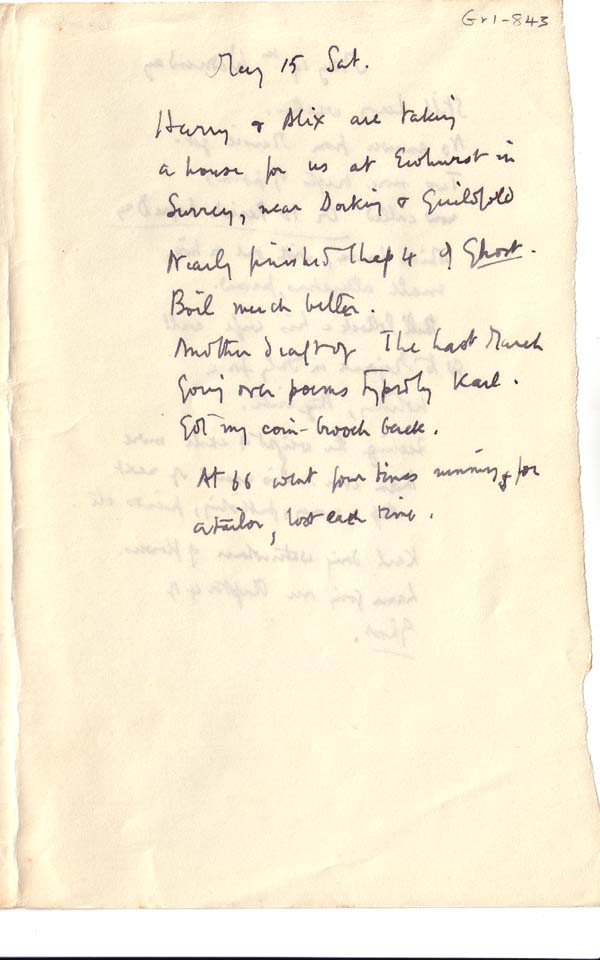 Gr1-843
May 15 Sat.
Harry & Alix are taking
a house for us at Ewhurst in
Surrey, near Dorking & Guildfold
Nearly finished Chap 4 of Ghost.
Boil much better.
Another draft of The Last March
Going over poems typed by Karl.
Got my coin-brooch back.
At 66 went four times running, for
a tailor, lost each time.